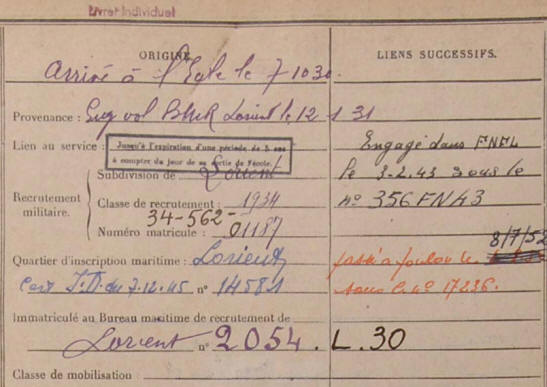 Livret Individuel
ORIGINE.
Arrivé à l'Egle le 7 10 30.
Provenance : Eng vol BMR Lorient le 12 1 31
Lien au service : Jusqu'à l'expiration d'une période de 5 ans
à compter du jour de sa sortie de l'école.
Subdivision de Lorient
Recrutement militaire.
Classe de recrutement : 1934
34-562-
Numéro matricule : 01187
Quartier d'inscription maritime : Lorient
J.D. du 7.12.45 n° 14581
Immatriculé au Bureau maritime de recrutement de
Lorient n° 2054. L. 30
Classe de mobilisation
LIENS SUCCESSIFS.
Engagé dans FNFL
le 3-2.43 sous le
n° 356 FN43
8/7/52
passé à Toulon le
sous le n° 17236.